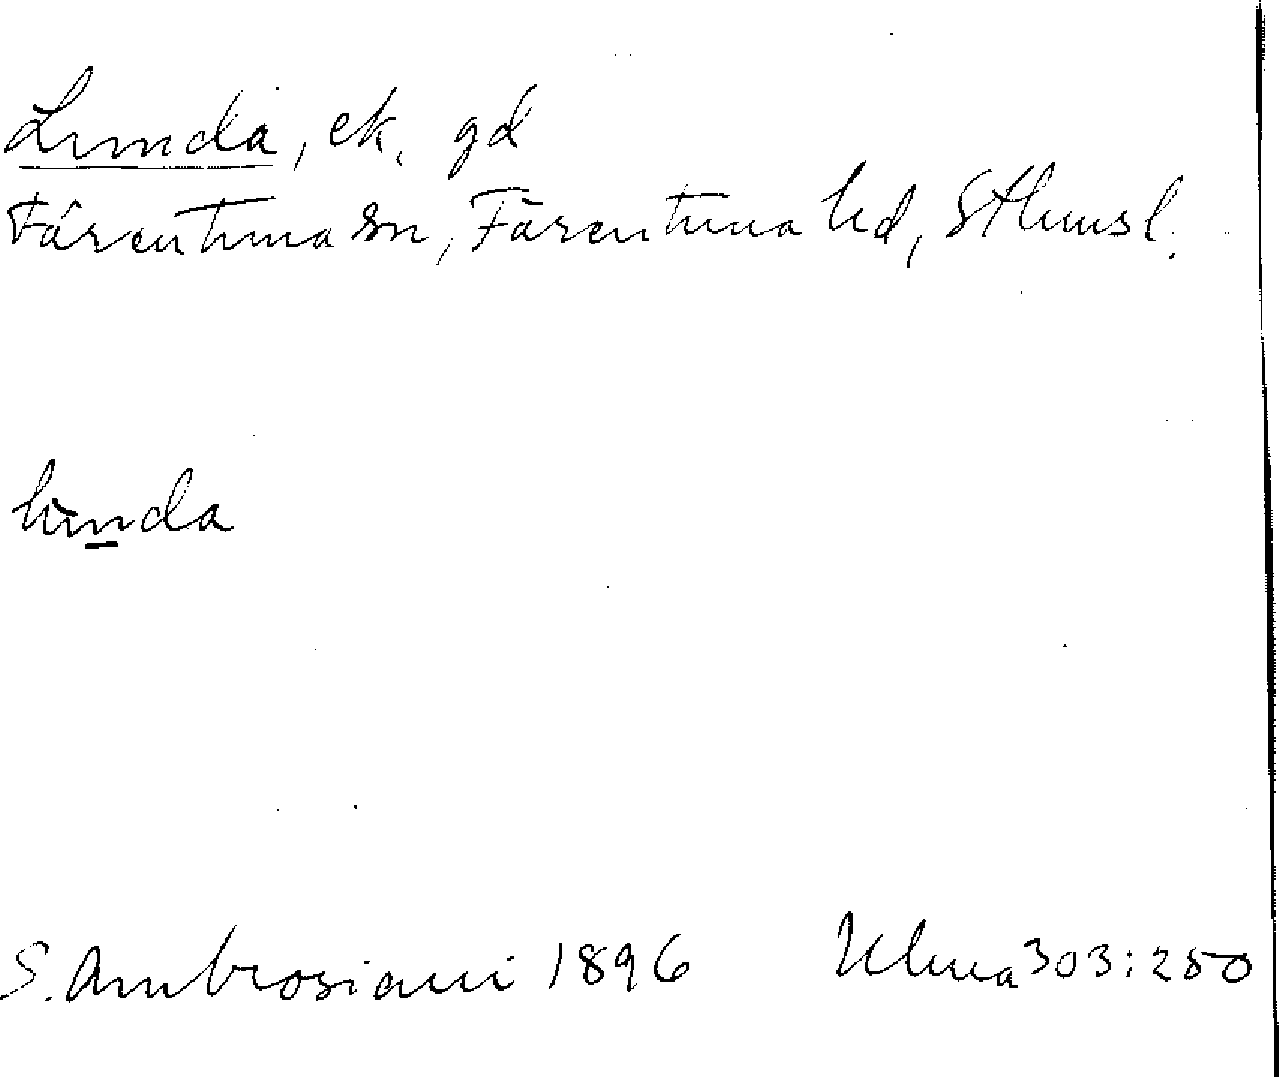 Lunda, ek. gd
Färentuna sn, Färentuna hd, Sthmsl.
lunda
S. Ambrosiani 1896 Ulma 303:250